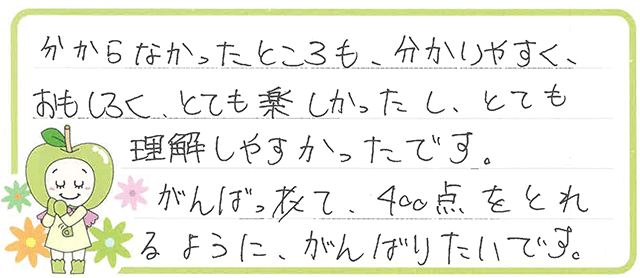 分からなかったところも、分かりやすく、
おもしろく、とても楽しかったし、とても
理解しやすかったです。
がんばっ枚て、400点をとれ
るように、がんばりたいです。